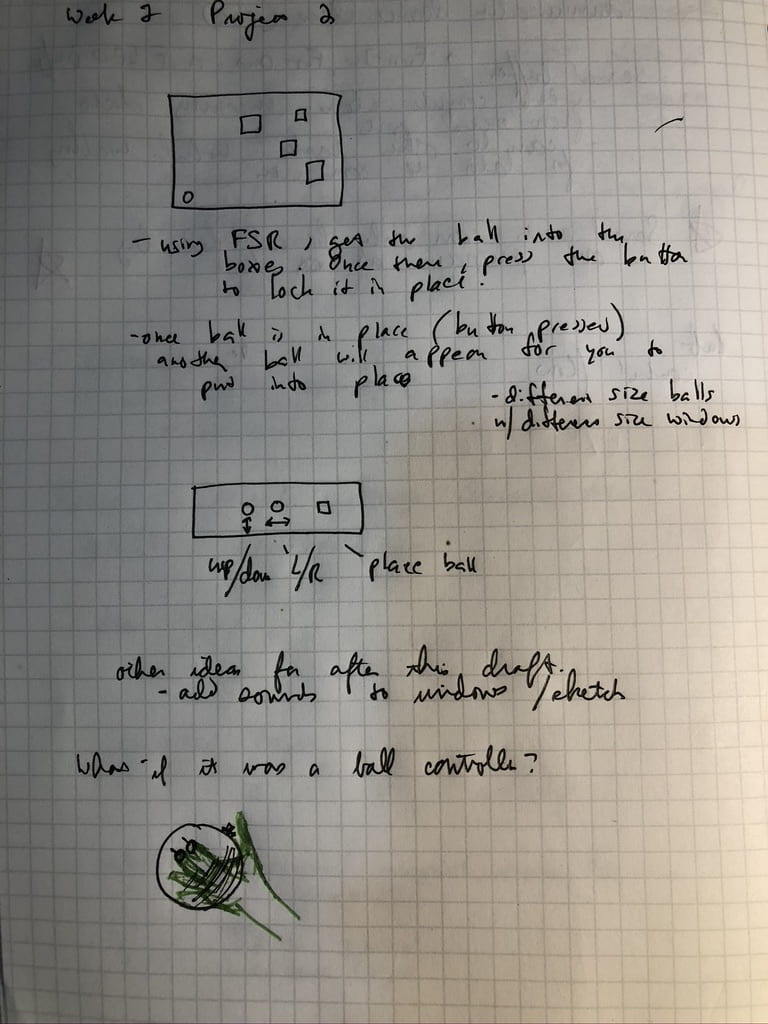 Week 2 Project 2
- using FSR, get the ball into the
boxes. Once there, press the button
to lock it in place.
- once ball is in place (button pressed)
another ball will appear for you to
put into place
- different size balls
w/ different size windows
up/down L/R place ball
other ideas for after this draft.
- add sounds to windows/sketch
What if it was a ball controller?